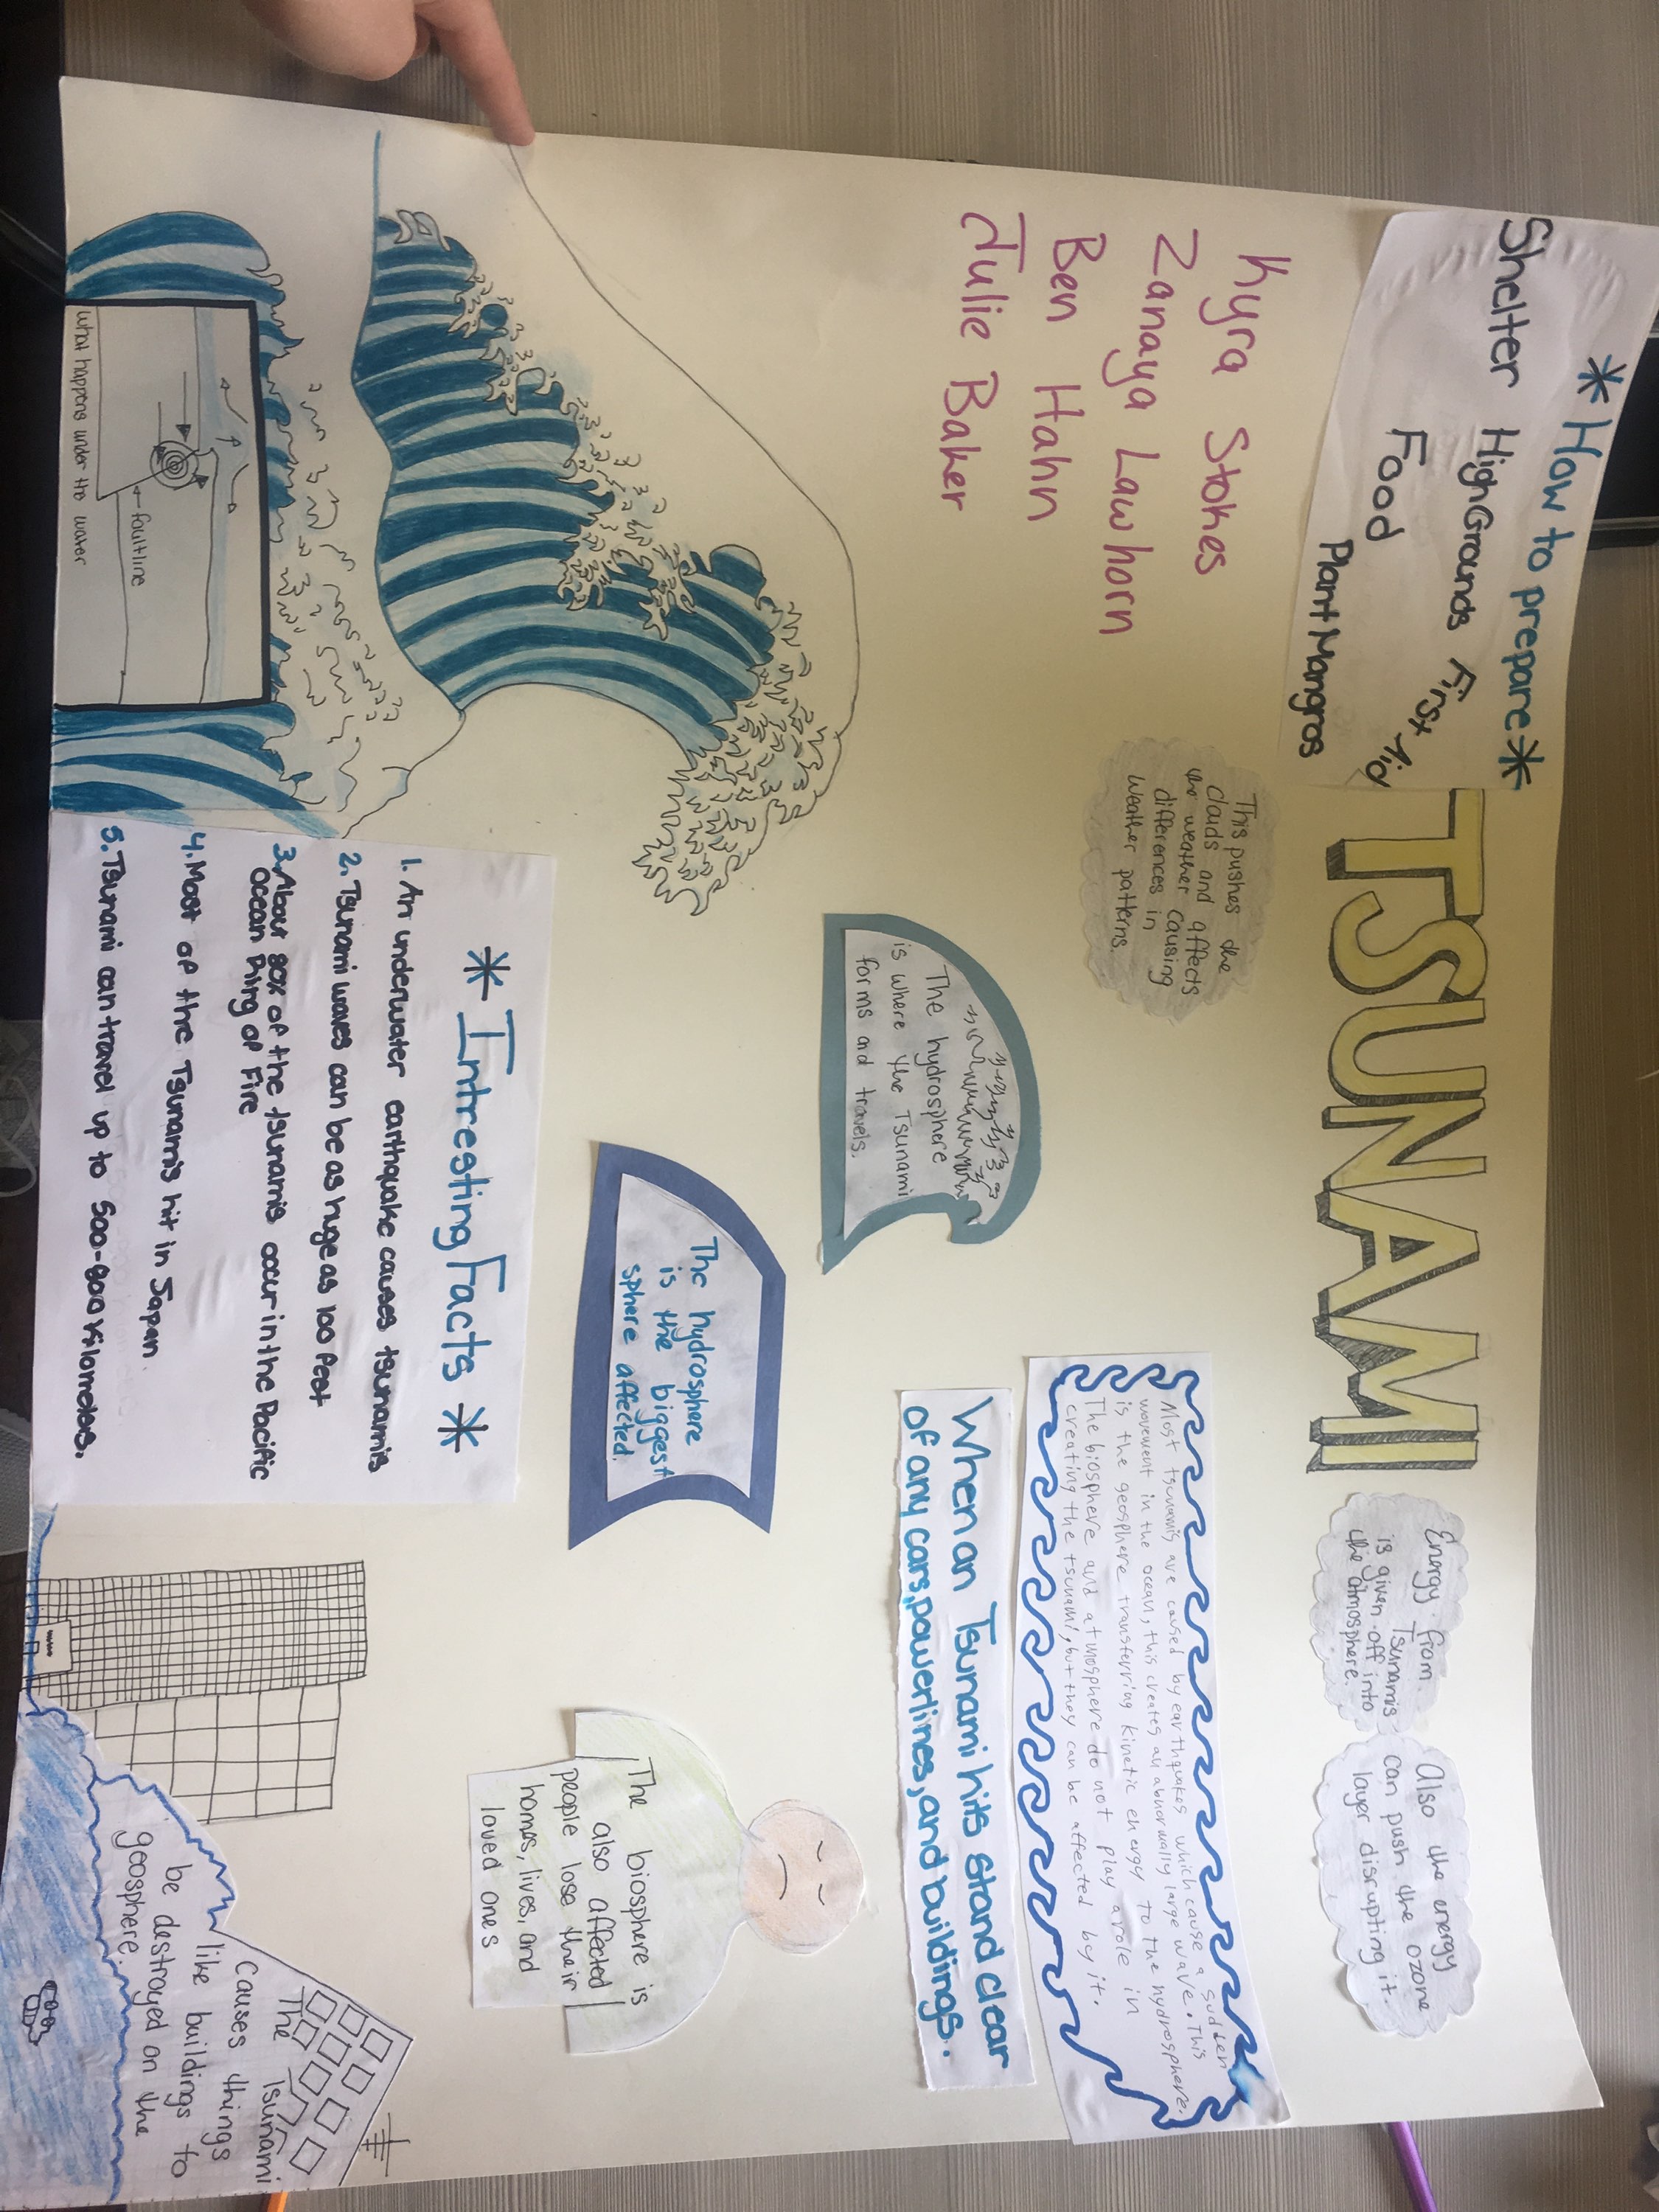 *How to prepare*
Shelter HighGrounds First Aid
Food
Plant Mangros
TSUNAMI
Energy from
Tsunamis
is given off into
the atmosphere.
Also the energy
can push the ozone
layer disrupting it.
Kyra Stokes
Zanaya Lawhorn
Ben Hahn
Julie Baker
This pushes the
clouds and affects
the weather causing
differences in
weather patterns.
Most tsunamis are caused by earthquakes which cause a sudden
movement in the ocean, this creates an abnormally large wave. This
is the geosphere transferring kinetic energy to the hydrosphere.
The biosphere and atmosphere do not play a role in
creating the tsunami, but they can be affected by it.
The hydrosphere
is where the Tsunami
forms and travels.
When an Tsunami hits stand clear
of any cars, powerlines, and buildings.
The hydrosphere
is the biggest
sphere affected.
The biosphere is
also affected
people lose their
homes, lives, and
loved ones
what happens under the water
faultline
* Intresting Facts *
1. An underwater earthquake causes tsunamis
2. Tsunami waves can be as huge as 100 feet
3. About 80% of the tsunamis occur in the Pacific
Ocean Ring of Fire
4. Most of the Tsunamis hit in Japan.
5. Tsunami can travel up to 500-800 Kilometers.
The Tsunami
causes things
like buildings to
be destroyed on the
geosphere.